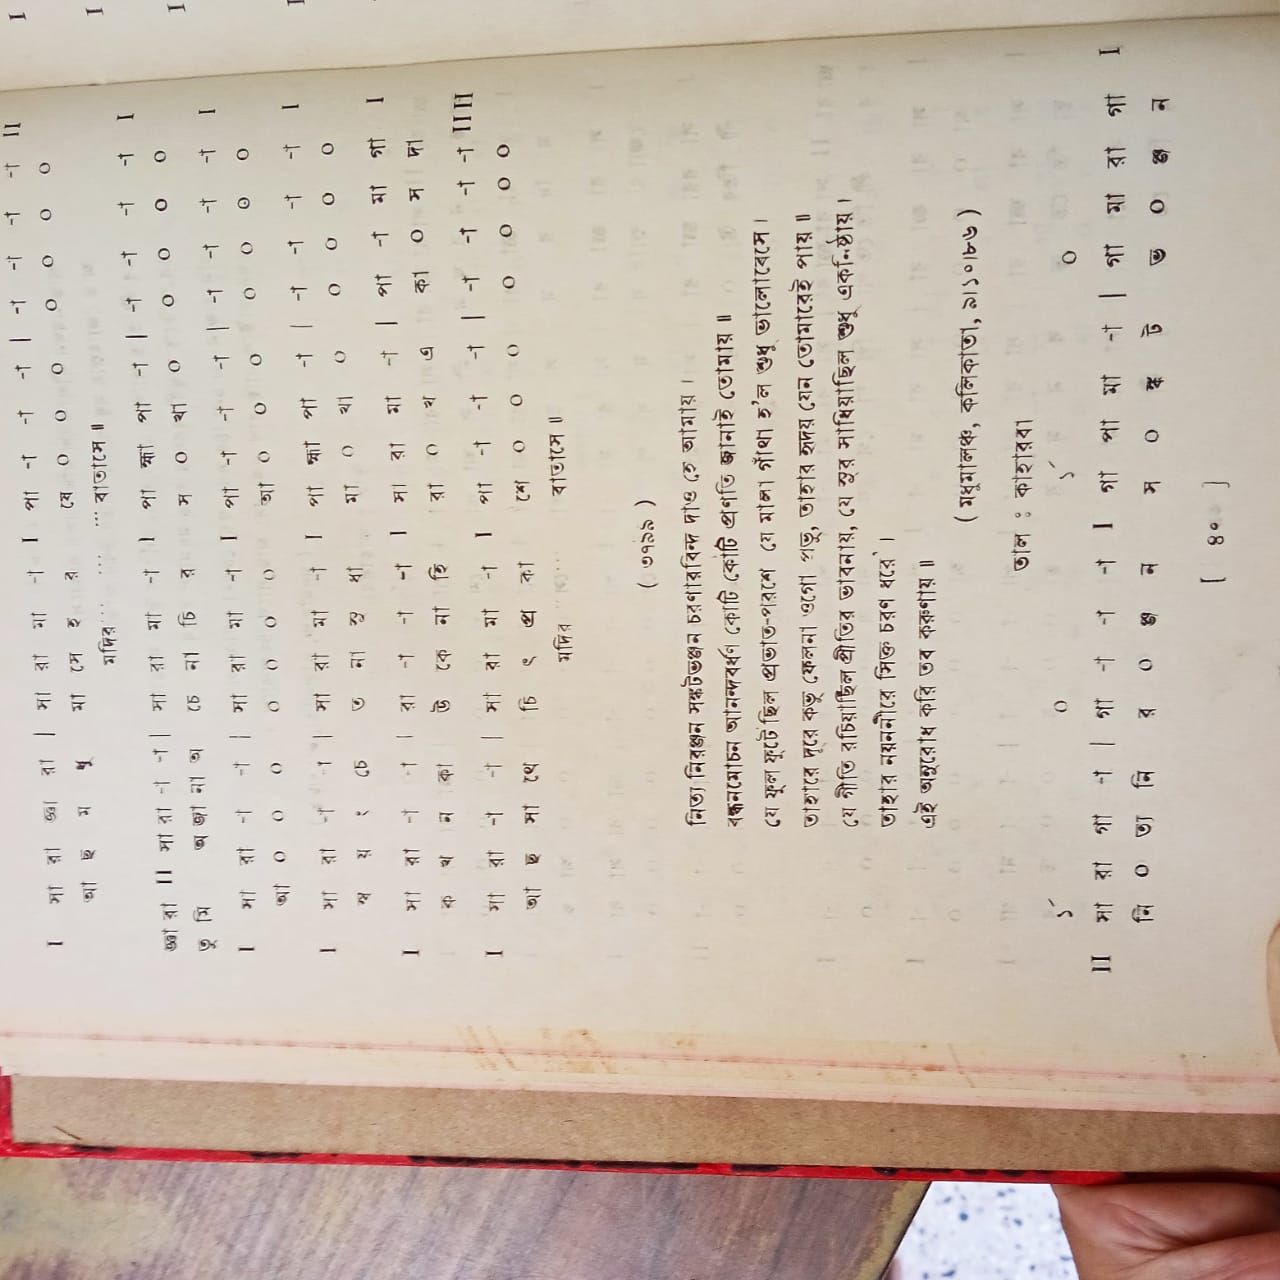 I সা রা জ্ঞা রা | সা রা মা -া I পা -া -া -া | -া -া -া -া II
আ ছ ম ধু মা সে হ র ষে ০ ০ ০ ০ ০ ০ ০
মদির... ... ... বাতাসে ॥
জ্ঞা রা II সা রা -া -া | সা রা মা -া I পা হ্মা পা -া | -া -া -া -া I
তু মি অ জা না অ চে না চি র স ০ খা ০ ০ ০ ০ ০
I সা রা -া -া | সা রা মা -া I পা -া -া -া | -া -া -া -া I
আ ০ ০ ০ ০ ০ ০ ০ আ ০ ০ ০ ০ ০ ০ ০
I সা রা -া -া | সা রা মা -া I পা হ্মা পা -া | -া -া -া -া I
স্ব য় ং চে ত না সু ধা মা ০ খা ০ ০ ০ ০ ০
I সা রা -া -া | রা -া -া -া I সা রা মা -া | পা -া মা গা I
ক খ ন কা উ কে না হি রা ০ খ এ কা ০ স দা
I সা রা -া -া | সা রা মা -া I পা -া -া -া | -া -া -া -া II II
আ ছ সা থে চি ৎ প্র কা শে ০ ০ ০ ০ ০ ০ ০
মদির ... বাতাসে ॥
( ৩৭৯৯ )
নিত্য নিরঞ্জন সঙ্কটভঞ্জন চরণারবিন্দ দাও হে আমায় ।
বন্ধনমোচন আনন্দবর্ধণ কোটি কোটি প্রণতি জানাই তোমায় ॥
যে ফুল ফুটেছিল প্রভাত-পরশে যে মালা গাঁথা হ'ল শুধু ভালোবেসে ।
তাহারে দূরে কভু ফেলনা ওগো প্রভু, তাহার হৃদয় যেন তোমারেই পায় ॥
যে গীতি রচিয়াছিল প্রীতির ভাবনায়, যে সুর সাধিয়াছিল শুধু একনিষ্ঠায় ।
তাহার নয়ননীরে সিক্ত চরণ ধরে' ।
এই অনুরোধ করি তব করুণায় ॥
( মধুমালঞ্চ, কলিকাতা, ৯।১০।৮৬ )
তাল : কাহারবা
১´ ০ ১´ ০
II সা রা গা -া | গা -া -া -া I গা পা মা -া | গা মা রা গা I
নি ০ ত্য নি র ০ ঞ্জ ন স ০ ঙ্ক ট ভ ০ ঞ্জ ন
[ ৪০ ]